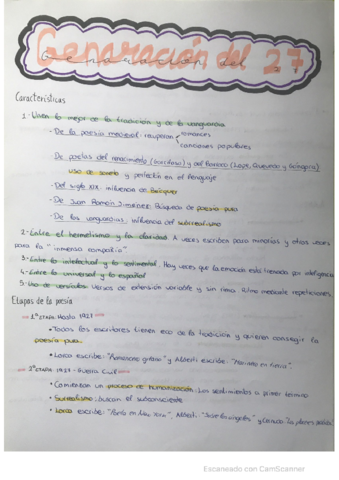 Generación del 27
Generación del 27
Características
1- Unen lo mejor de la tradición y de la vanguardia
- De la poesía medieval: recuperan romances
canciones populares
- De poetas del renacimiento (Garcilaso) y del Barroco (Lope, Quevedo y Góngora)
uso de soneto y perfección en el lenguaje
- Del siglo XIX: influencia de Bécquer
- De Juan Ramón Jiménez: Búsqueda de poesía pura
- De las vanguardias: influencia del surrealismo
2- Entre el hermetismo y la claridad. A veces escriben para minorías y otras veces
para la "inmensa compañía"
3- Entre lo intelectual y lo sentimental. Hay veces que la emoción está frenada por inteligencia
4- Entre lo universal y lo español
5- Uso de versículos. Versos de extensión variable y sin rima. Ritmo mediante repeticiones.
Etapas de la poesía
1ª ETAPA: Hasta 1927
• Todos los escritores tienen eco de la tradición y quieren conseguir la
poesía pura.
• Lorca escribe: "Romancero gitano" y Alberti escribe: "Marinero en tierra".
2ª ETAPA: 1927 - Guerra Civil
• Comienzan un proceso de humanización: Los sentimientos a primer termino
• Surrealismo: buscan el subconsciente
• Lorca escribe: "Poeta en New York", Alberti: "Sobre los ángeles" y
Escaneado con CamScanner